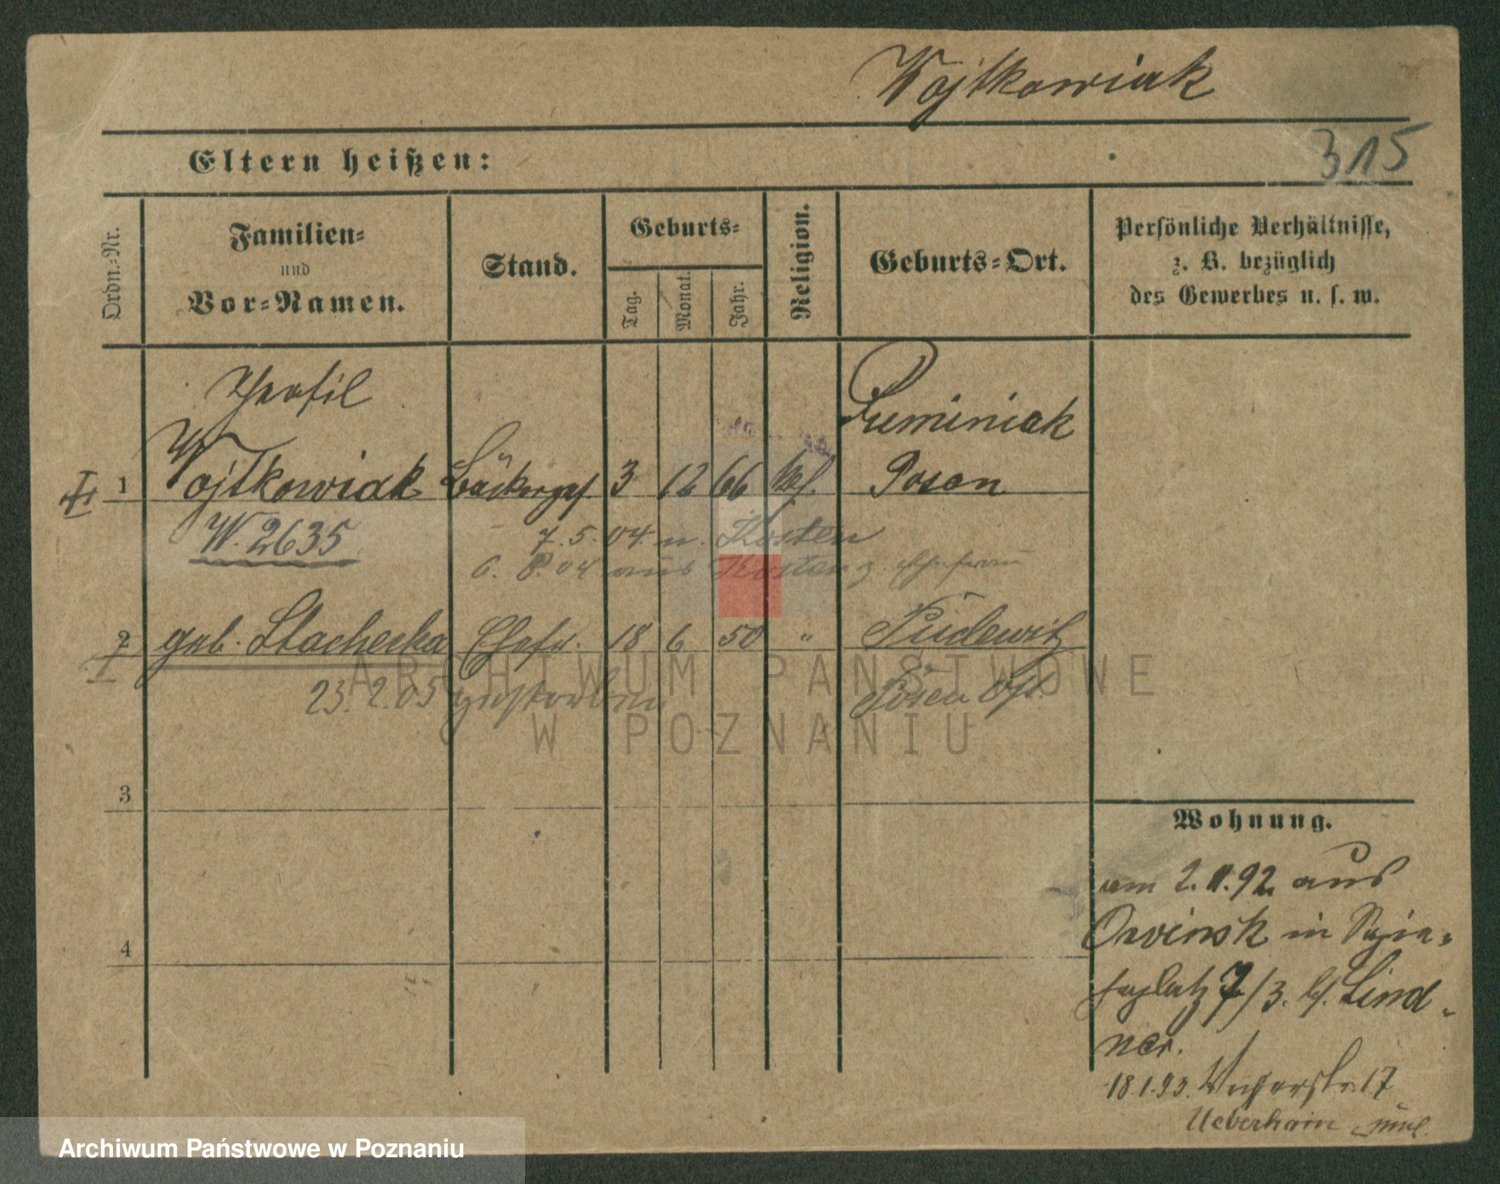 Wojtkowiak
315
Eltern heißen:
Ordn.-Nr.
Familien-
und
Vor-Namen.
Stand.
Geburts-
Tag.
Monat.
Jahr.
Religion.
Geburts-Ort.
Persönliche Verhältnisse,
z. B. bezüglich
des Gewerbes u. s. w.
Theofil
1 Wojtkowiak Bäckerges. 3 12 66 kath. Posen
W. 2635
7. 5. 04. n. Kosten
6. 8. 04 aus Kosten z. Ehefrau
2 geb. Stachecka Ehefr. 18 6 50 " Pudewitz
23. 2. 05 gestorben Posen Ost
3
4
Wohnung.
am 2. 11. 92 aus
in
7/3. b. Lind-
ner.
18 1. 93. 17
Ueberhain
ARCHIWUM PAŃSTWOWE
W POZNANIU
Archiwum Państwowe w Poznaniu